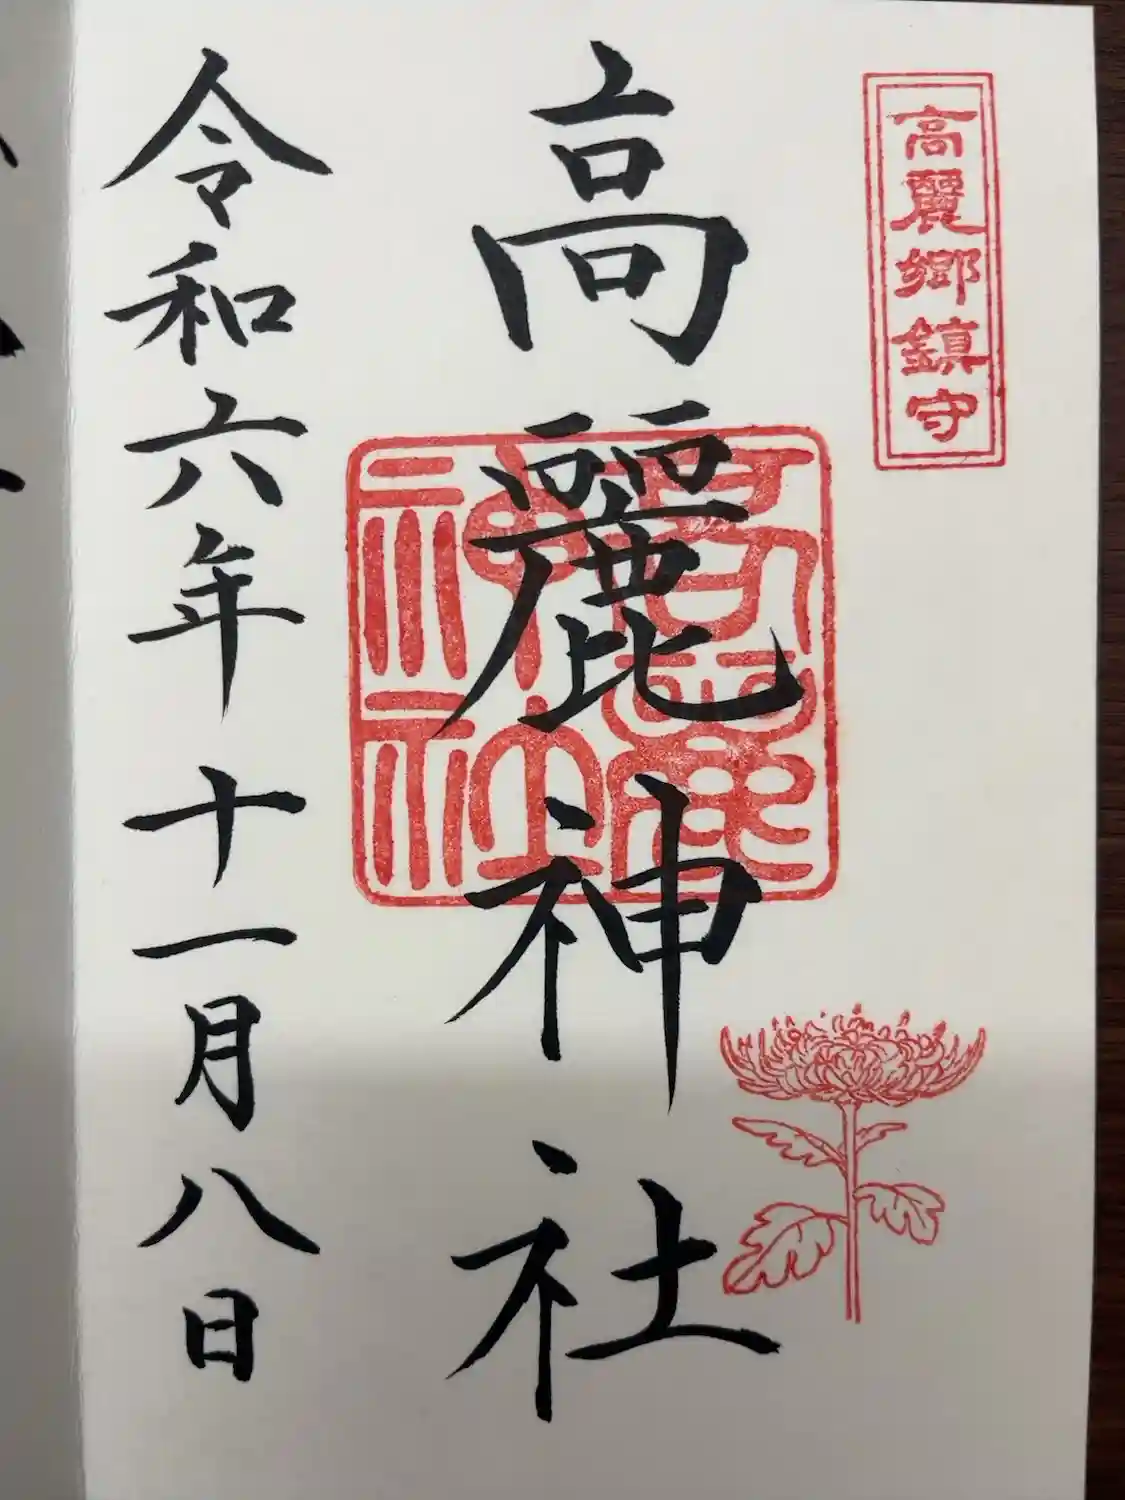 高麗郷鎮守
高麗神社
高麗神社
令和六年十一月八日